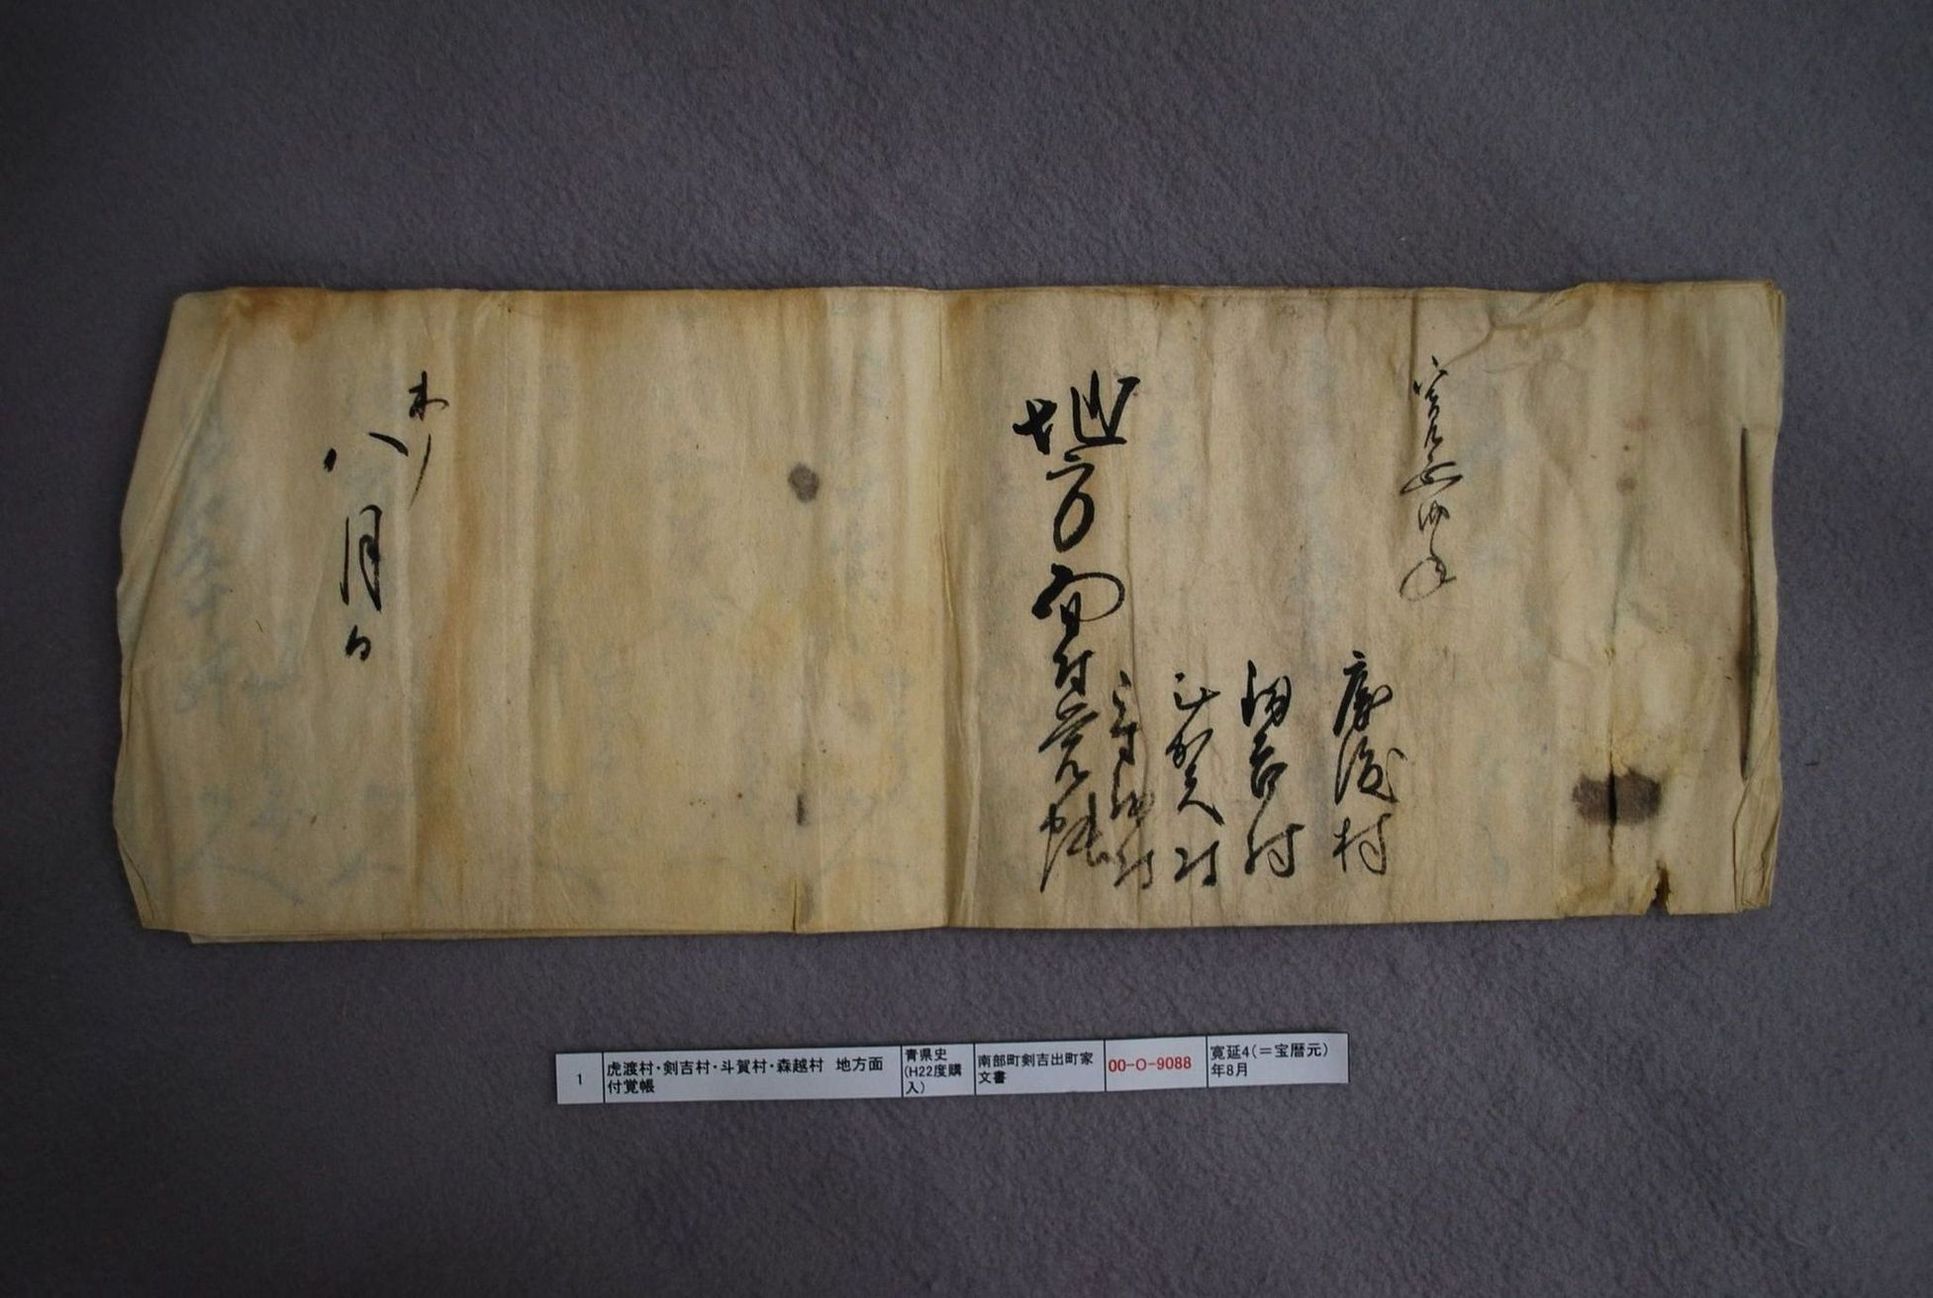 寛延四年
虎渡村
剣吉村
斗賀村
森越村
地方面付覚帳
未ノ
八月日
1
虎渡村・剣吉村・斗賀村・森越村　地方面
付覚帳
青県史
(H22度購
入)
南部町剣吉出町家
文書
00-O-9088
寛延4(＝宝暦元)
年8月